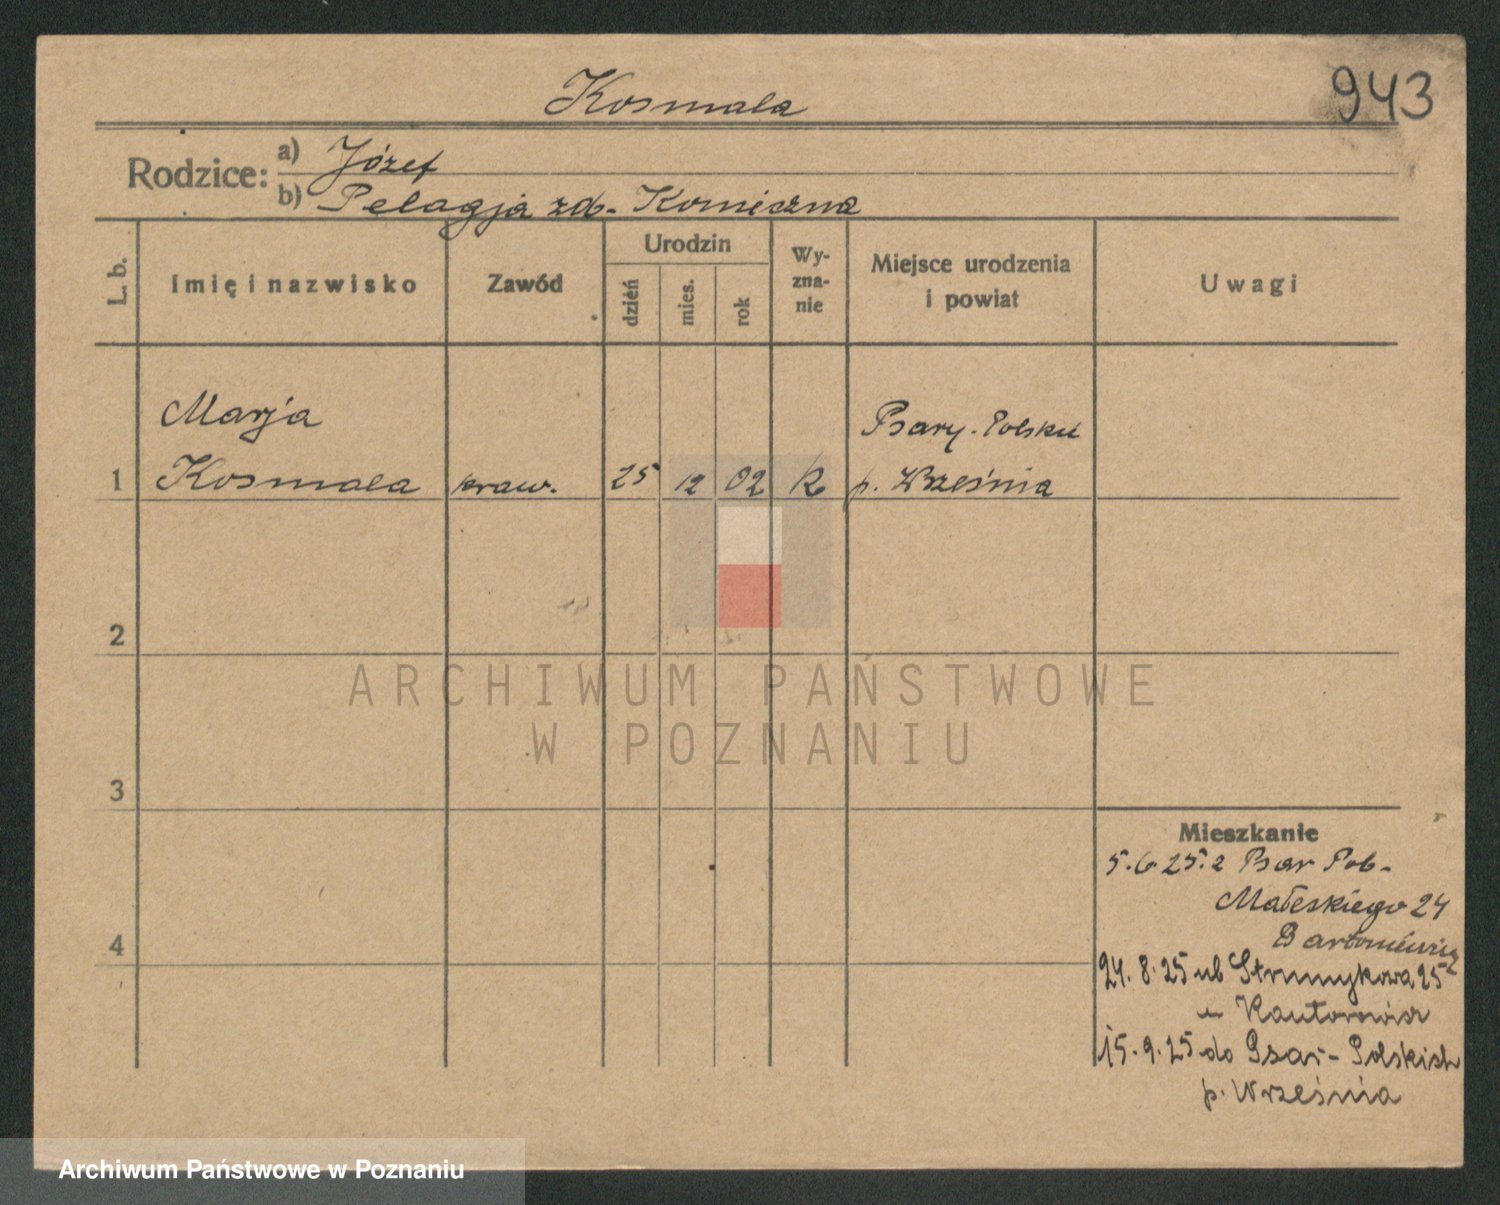 Kosmala
943
Rodzice:
a) Józef
b) Pelagja zd. Komiczna
L. b.
Imię i nazwisko
Zawód
Urodzin
dzień
mies.
rok
Wy-
zna-
nie
Miejsce urodzenia
i powiat
Uwagi
Marja
Psary-Polskie
1 Kosmala kraw. 25 12 02 R p. Września
2
ARCHIWUM PAŃSTWOWE
W POZNANIU
3
Mieszkanie
5.6 25. z Psar Pol-
Małeskiego 24
4
24. 8. 25 ul Strumykowa 25
u
15. 9. 25 do Psar-Polskich
p. Września
Archiwum Państwowe w Poznaniu